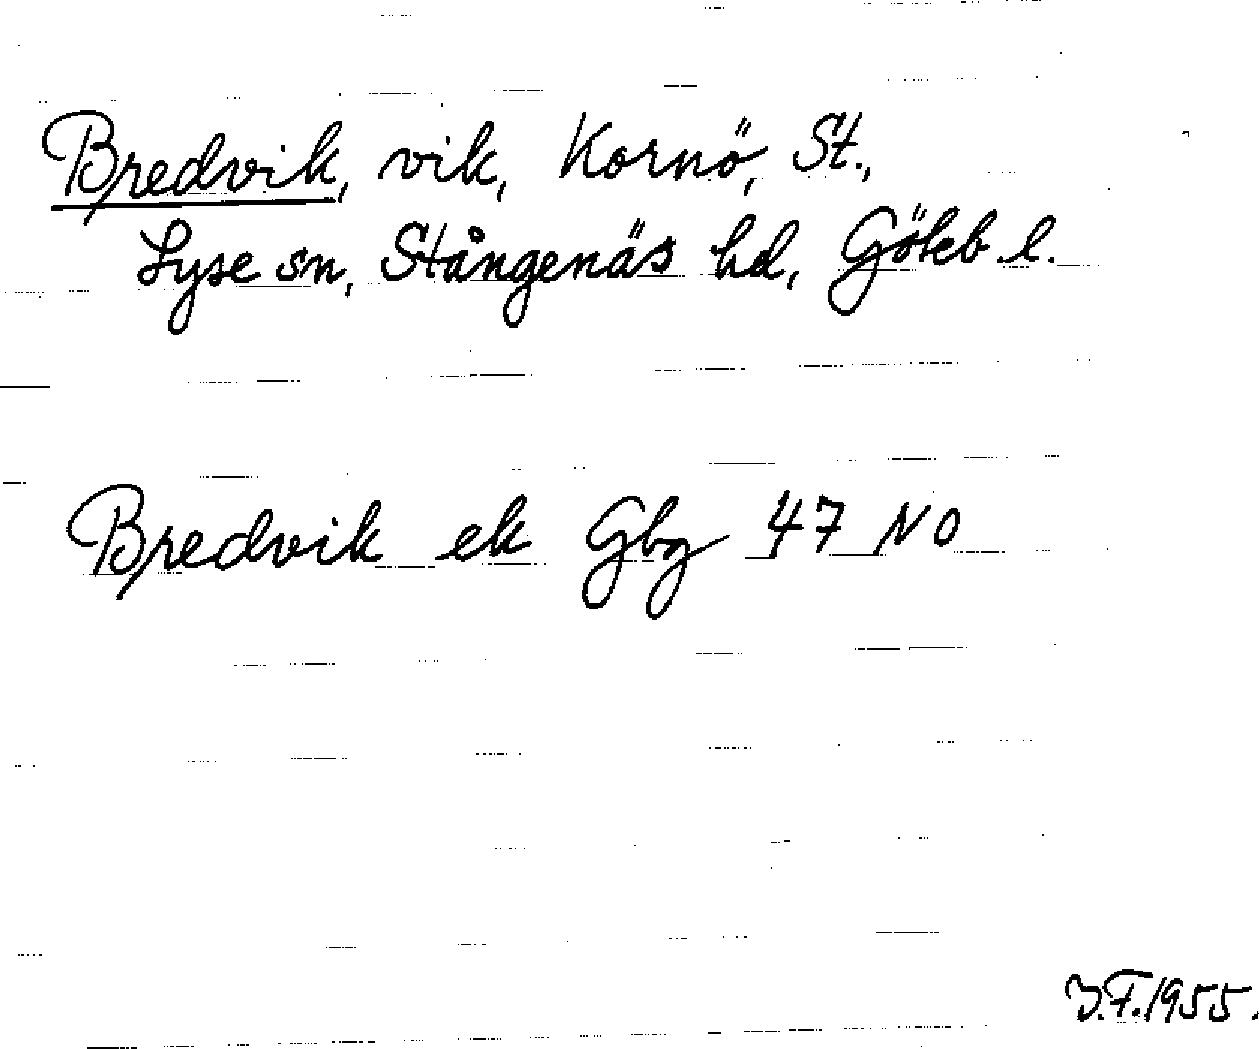 Bredvik, vik, Kornö, St.,
Lyse sn, Stångenäs hd, Göteb. l.
Bredvik ek Gbg 47 NO
J.F. 1955.